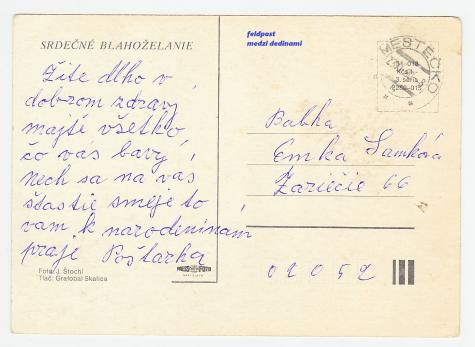 SRDEČNÉ BLAHOŽELANIE
Žite dlho v
dobrom zdraví,
majte všetko
čo vas baví,
nech sa na vas
šťastie smeje to
vam k narodeninám
praje Poštarka
Foto: J. Štochl
Tlač: Grafobal Skalica
feldpost
medzi dedinami
MESTEČKO
Babka
Emka Samková
Zariečie 66
02052